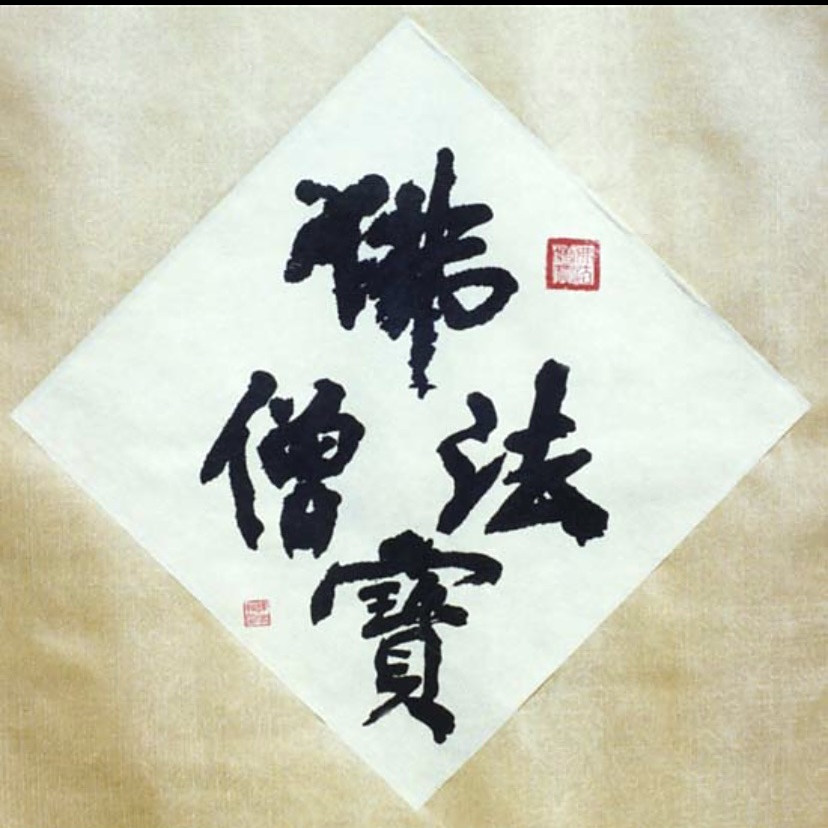 佛
僧 法
寶